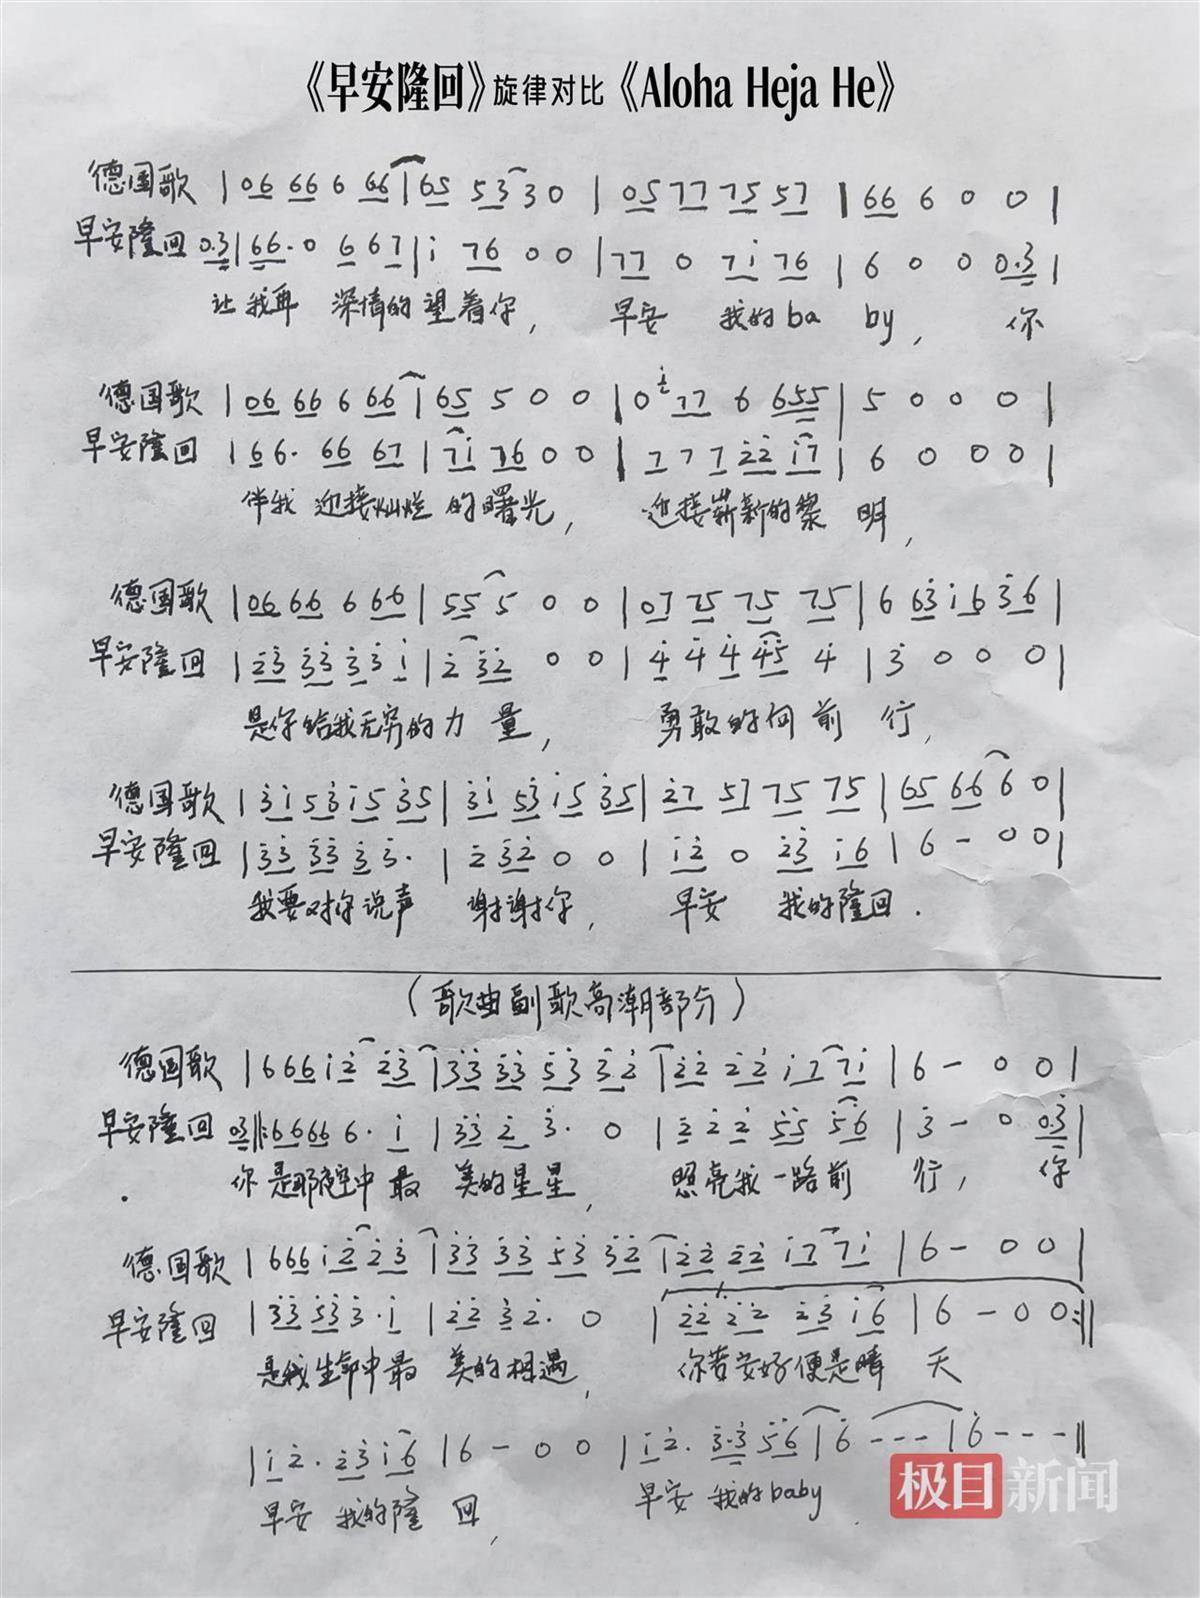 《早安隆回》旋律对比《Aloha Heja He》
德国歌 | 06 66 6 66 | 65 53 30 | 05 77 75 57 | 66 6 0 0 |
早安隆回 0.3 | 66. 0 6 67 | i 76 0 0 | 77 0 7i 76 | 6 0 0 0.3 |
让我再 深情的 望着你, 早安 我的ba by, 你
德国歌 | 06 66 6 66 | 65 5 0 0 | 0 i 77 6 655 | 5 0 0 0 |
早安隆回 | 66. 66 67 | 7i 76 0 0 | 7 7 7 22 i7 | 6 0 0 0 |
伴我 迎接灿烂 的曙光, 迎接崭新的黎 明,
德国歌 | 06 66 6 66 | 55 5 0 0 | 07 75 75 75 | 6 63 i6 36 |
早安隆回 | 23 33 3 3 i | 2 32 0 0 | 4 4 4 45 4 | 3 0 0 0 |
是你给我无穷的力 量, 勇敢的向 前 行,
德国歌 | 3i 53 i5 35 | 3i 53 i5 35 | 27 57 75 75 | 65 66 6 0 |
早安隆回 | 33 33 3 3. | 2 32 0 0 | i2 0 23 i6 | 6 - 0 0 |
我要对你说声 谢谢你, 早安 我的隆回.
(歌曲副歌高潮部分)
德国歌 | 666 i2 23 | 33 33 53 32 | 22 22 i7 7i | 6 - 0 0 |
早安隆回 03 ‖: 6666 6. i | 33 2 3. 0 | 2 2 2 55 56 | 3 - 0 0.3 |
你 是那夜空中 最 美的星星, 照亮我一路前 行, 你
德国歌 | 666 i2 23 | 33 33 53 32 | 22 22 i7 7i | 6 - 0 0 |
早安隆回 | 33 53 3. i | 22 32. 0 | 22 22 23 i6 | 6 - 0 0 :‖
是我生命中 最 美的相遇, 你若安好便是晴 天
| i2. 23 i6 | 6 - 0 0 | i2. 3.3 56 | 6 - - - | 6 - - - ‖
早安 我的隆 回, 早安 我的baby
极目新闻